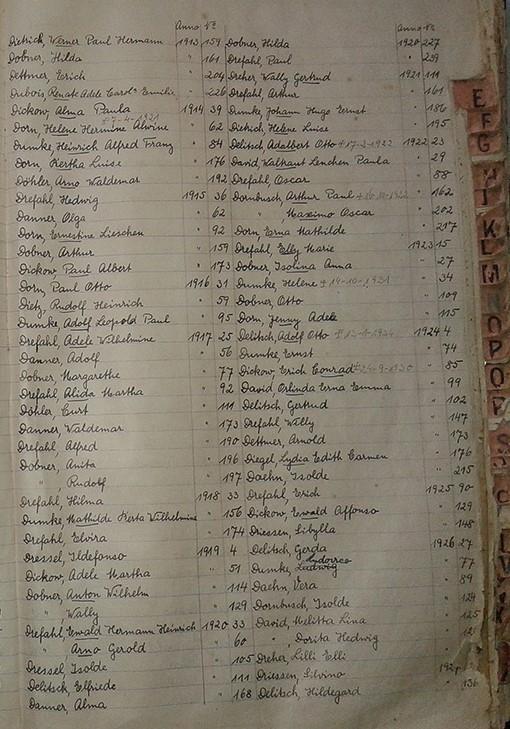 Anno № Anno №
Dietrich, Werner Paul Hermann 1913 159 Dobner, Hilda 1920 227
Dobner, Hilda " 161 Drefahl, Paul " 239
Dettmer, Erich " 204 Dreher, Wally Gertrud 1921 111
Dubois, Renate Adele Carol. Emilie " 226 Drefahl, Arthur " 161
Dickow, Alma Paula 1914 39 Dumke, Johann Hugo Ernst " 186
Dorn, Helene Hermine Alwine " 62 Dietrich, Helene Luise " 195
Dumke, Heinrich Alfred Franz " 84 Delitsch Adalbert Otto 1922 23
Dorn, Hertha Luise " 176 David, Waltraut Lenchen Paula " 29
Döhler, Arno Waldemar " 192 Drefahl, Oscar " 88
Drefahl, Hedwig 1915 36 Dornbusch, Arthur Paul " 162
Danner Olga " 62 " Maximo Oscar " 202
Dorn, Ernestine Lieschen " 92 Dorn, Erna Mathilde " 217
Dobner, Arthur " 159 Drefahl, Elly Marie 1923 15
Dickow, Paul Albert " 173 Dobner Isolina Anna " 27
Dorn, Paul Otto 1916 31 Dumke, Helene + 14-10-1931 " 34
Dietz, Rudolf Heinrich " 59 Dobner, Otto " 109
Dumke, Adolf Leopold Paul " 95 Dorn, Jenny Adele " 115
Drefahl, Adele Wilhelmine 1917 25 Delitsch, Adolf Otto 1924 4
Danner, Adolf " 56 Dumke, Ernst " 74
Dobner, Margarethe " 77 Dickow, Erich Conrad " 85
Drefahl, Alida Martha " 92 David, Orlinda Erna Emma " 99
Döhler, Curt " 111 Delitsch, Gertrud " 102
Danner, Waldemar " 173 Drefahl, Willy " 147
Drefahl, Alfred " 190 Dettmer, Arnold " 173
Dobner, Anita " 196 Diegel, Lydia Edith Carmen " 176
" Rudolf " 197 Daehn, Isolde " 215
Drefahl, Hilma 1918 33 Drefahl, Erich 1925 90
Dumke, Mathilde Herta Wilhelmine " 156 Dickow, Ewald Affonso " 129
Drefahl, Elvira " 174 Driessen, Sibylla " 148
Dressel, Ildefonso 1919 4 Delitsch, Gerda 1926 27
Dickow, Adele Martha " 51 Dumke, " 77
Dobner, Anton Wilhelm " 114 Daehn, Vera " 89
" Wally " 129 Dornbusch, Isolde " 124
Drefahl, Ewald Hermann Heinrich 1920 33 David, Melitta Lina " 125
" Arno Gerold " 60 " Dorita Hedwig "
Dressel, Isolde " 105 Dreher, Lilli Elli
Delitsch, Elfriede " 111 Driessen, Silvino
Danner, Alma " 168 Delitsch, Hildegard " 136
E
F
G
K
L
M
O
P